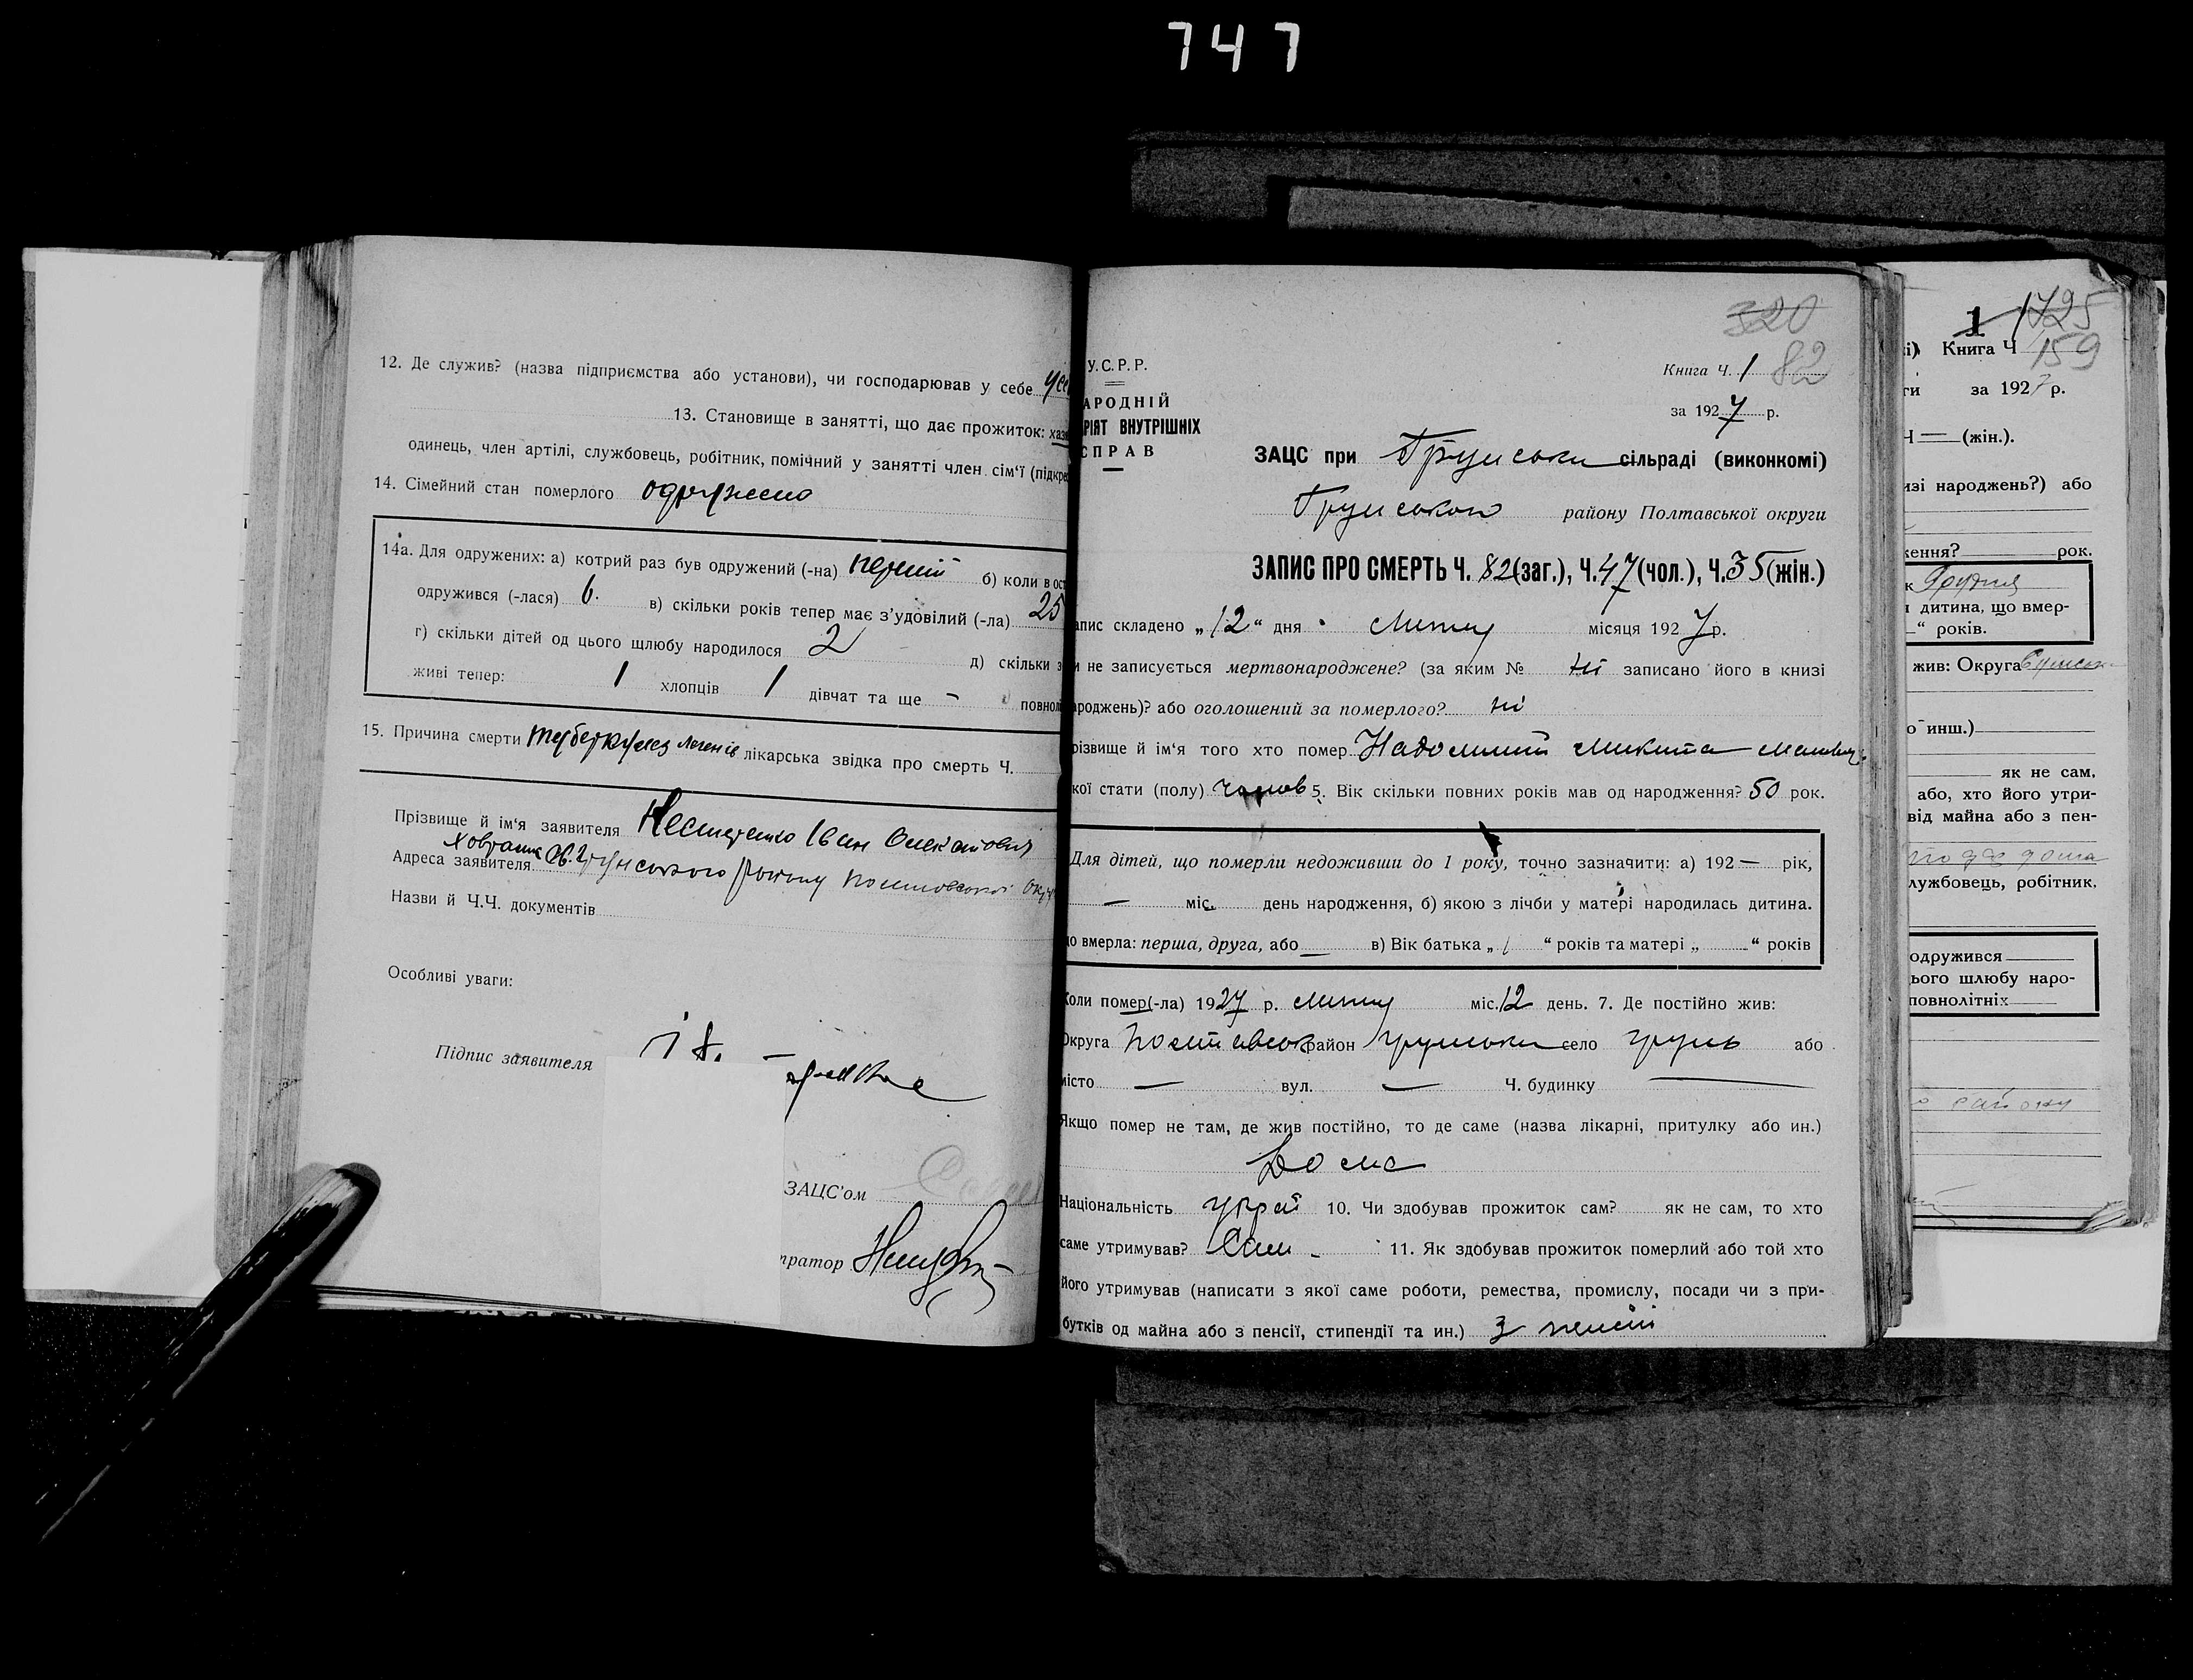 747
12. Де служив? (назва підприємства або установи), чи господарював у себе
13. Становище в занятті, що дає прожиток: хаз
одинець, член артілі, службовець, робітник, помічний у занятті член сім'ї (підкре
14. Сімейний стан померлого одружено
14а. Для одружених: а) котрий раз був одружений (-на) перший б) коли в ост
одружився (-лася) 6. в) скільки років тепер має з'удовілий (-ла) 25
г) скільки дітей од цього шлюбу народилося 2 д) скільки з
живі тепер: 1 хлопців 1 дівчат та ще - повнолі
15. Причина смерти туберкульоз легенів лікарська звідка про смерть Ч.
Прізвище й ім'я заявителя Нестеренко Іван
Адреса заявителя Грунського району Полтавської Окр
Назви й Ч.Ч. документів
Особливі уваги:
Підпис заявителя
ЗАЦС'ом
тратор
320
У.С.Р.Р.
Книга Ч. 1 82
АРОДНІЙ
за 1927 р.
РІЯТ ВНУТРІШНІХ
СПРАВ
ЗАЦС при Грунській сільраді (виконкомі)
Грунського району Полтавської округи
ЗАПИС ПРО СМЕРТЬ Ч. 82 (заг.), Ч. 47 (чол.), Ч. 35 (жін.)
апис складено „12“ дня Лютий місяця 1927 р.
и не записується мертвонароджене? (за яким № ні записано його в книзі
ароджень)? або оголошений за померлого? ні
різвище й ім'я того хто помер Микита
кої стати (полу) чолов 5. Вік скільки повних років мав од народження? 50 рок.
Для дітей, що померли недоживши до 1 року, точно зазначити: а) 192 — рік,
— міс. день народження, б) якою з лічби у матері народилась дитина.
до вмерла: перша, друга, або — в) Вік батька „ / “ років та матері „ “ років
Коли помер(-ла) 1927 р. Лютий міс. 12 день. 7. Де постійно жив:
Округа Полтавськ район Грунський село Грунь або
місто — вул. — Ч. будинку —
Якщо помер не там, де жив постійно, то де саме (назва лікарні, притулку або ин.)
Дома
Національність Украї 10. Чи здобував прожиток сам? як не сам, то хто
саме утримував? Сам - 11. Як здобував прожиток померлий або той хто
його утримував (написати з якої саме роботи, ремества, промислу, посади чи з при-
бутків од майна або з пенсії, стипендії та ин.) З пенсії
1 1725
і) Книга Ч 159
ги за 1927 р.
Ч — (жін.).
изі народжень?) або
ження? рок.
к Грудня
дитина, що вмер-
“ років.
жив: Округа Сумськ
о инш.)
як не сам,
або, хто його утри-
від майна або з пен-
лужбовець, робітник,
одружився
ього шлюбу наро-
повнолітніх
району